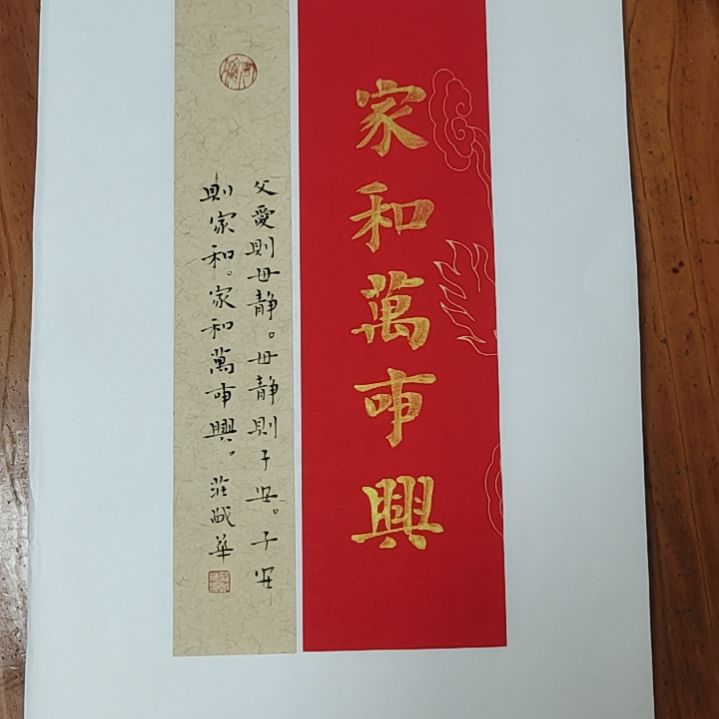 家和萬事興
父愛則母静。母静則子安。子安
則家和。家和萬事興。莊晟華